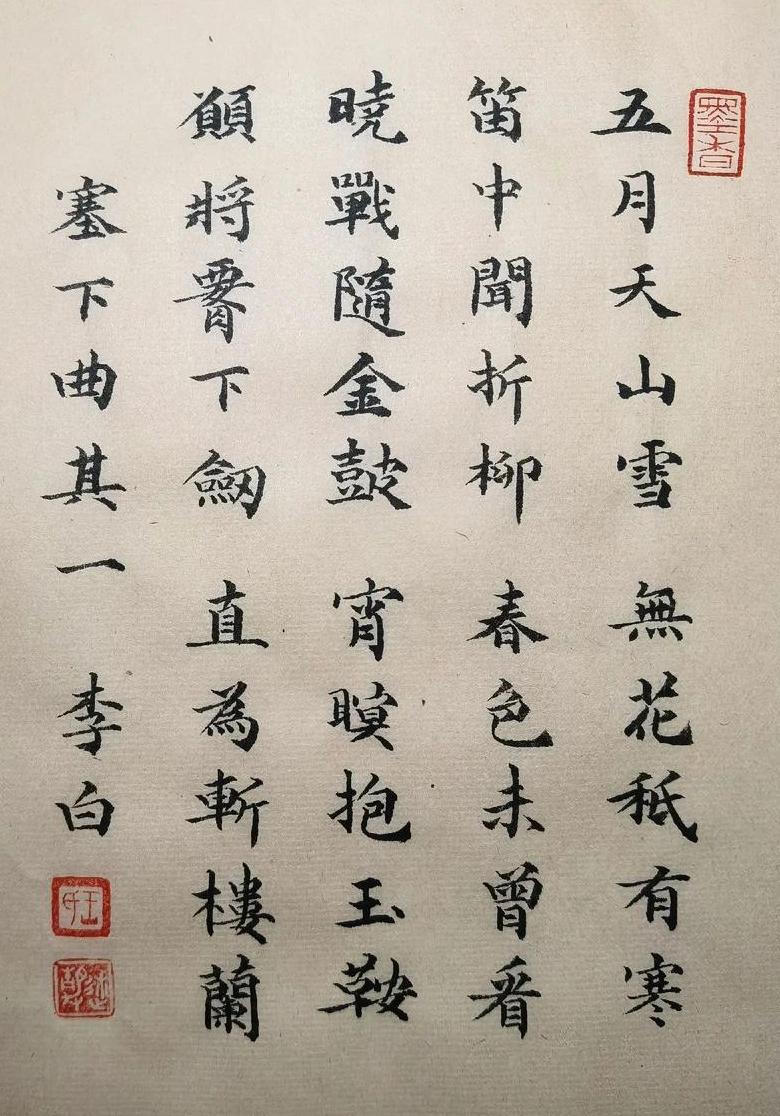 墨香
五月天山雪 無花秖有寒
笛中聞折柳 春色未曾看
曉戰隨金鼓 宵瞑抱玉鞍
願將䁥下劒 直為斬樓蘭
塞下曲其一 李白